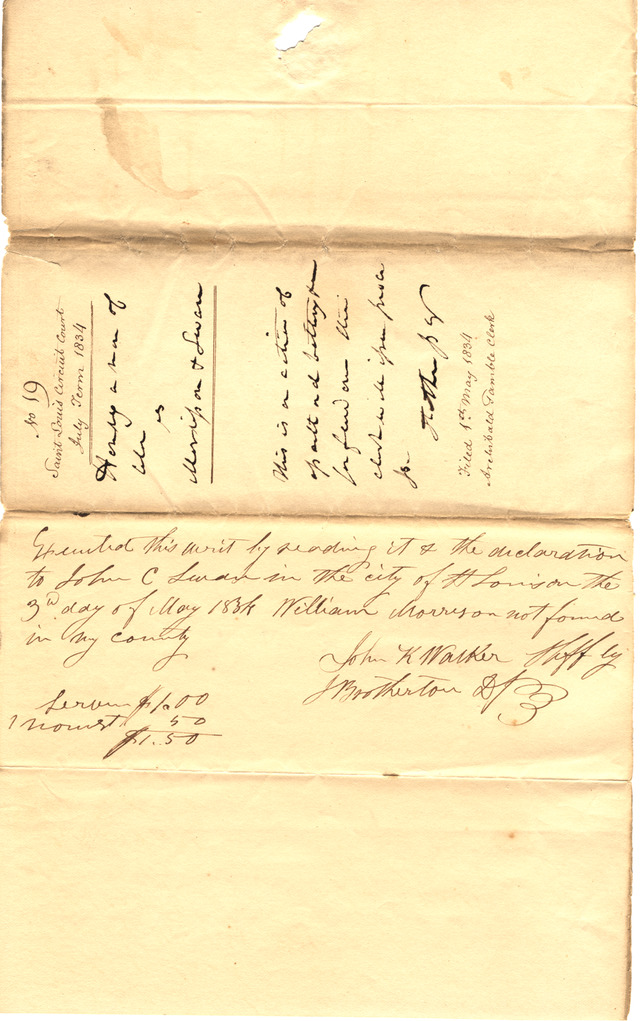 No 19
Saint Louis Circuit Court
July Term 1834
Henry a man of
vs
Morrison & Swan
This is an action of
Filed 1st May 1834
Archibald Gamble Clerk
Executed this writ by reading it & the declaration
to John C Swan in the city of St Louis on the
3rd day of May 1834 William Morrison not found
in my county
John K Walker Shff by
J Brotherton DS
Service $1.00
1 nonest 50
$1.50